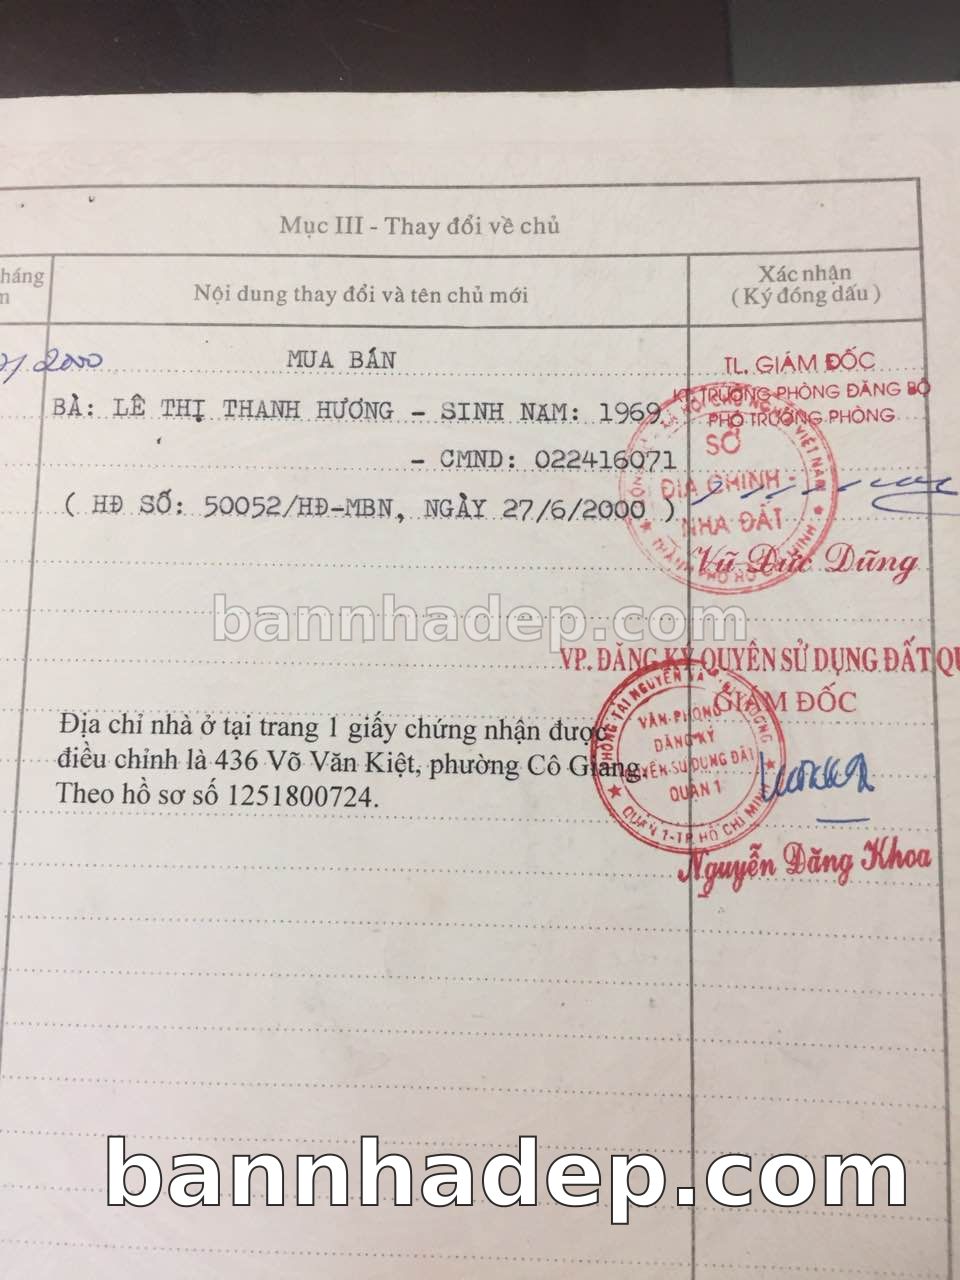 Mục III - Thay đổi về chủ
háng
Nội dung thay đổi và tên chủ mới
Xác nhận
( Ký đóng dấu )
/ 2000
MUA BÁN
BÀ: LÊ THỊ THANH HƯƠNG - SINH NĂM: 1969.
- CMND: 022416071
( HĐ SỐ: 50052/HĐ-MBN, NGÀY 27/6/2000 )
TL. GIÁM ĐỐC
KT. TRƯỞNG PHÒNG ĐĂNG BỘ
PHÓ TRƯỞNG PHÒNG
SỞ
ĐỊA CHÍNH -
NHÀ ĐẤT
THÀNH PHỐ HỒ CHÍ MINH
Vũ Đức Dũng
bannhadep.com
VP. ĐĂNG KÝ QUYỀN SỬ DỤNG ĐẤT QU
GIÁM ĐỐC
Địa chỉ nhà ở tại trang 1 giấy chứng nhận được
điều chỉnh là 436 Võ Văn Kiệt, phường Cô Giang.
Theo hồ sơ số 1251800724.
VĂN PHÒNG
ĐĂNG KÝ
QUYỀN SỬ DỤNG ĐẤT
QUẬN 1
QUẬN 1-TP. HỒ CHÍ MINH
Nguyễn Đăng Khoa
bannhadep.com